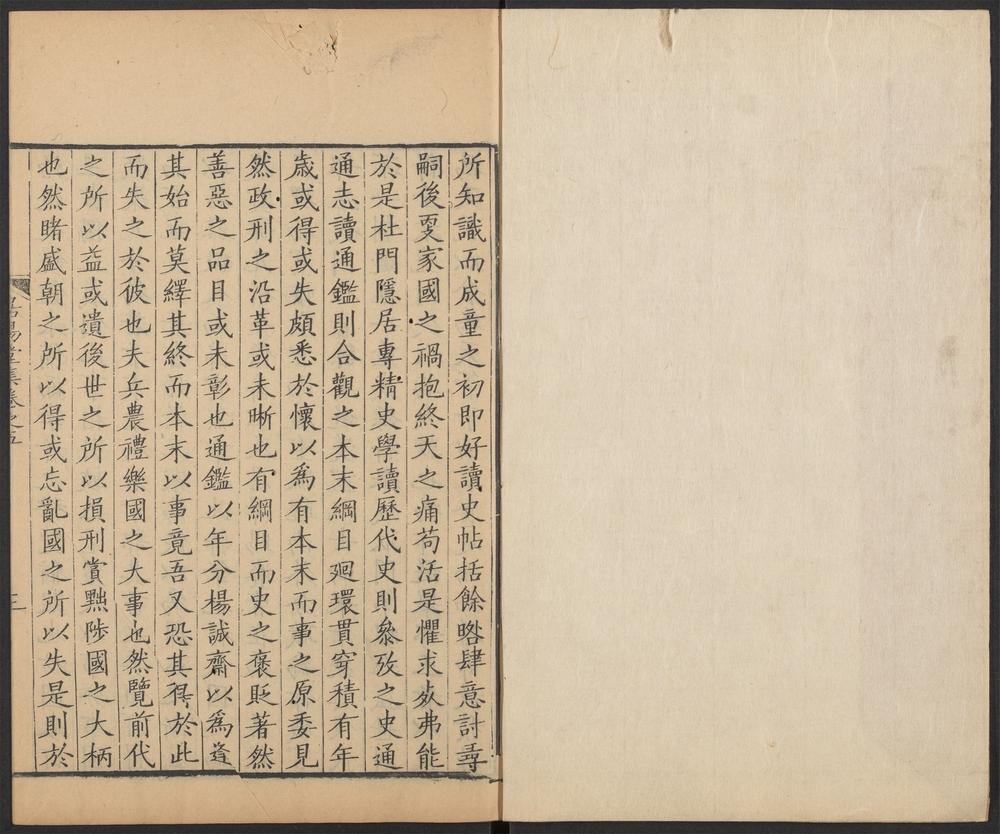 所知識而成童之初即好讀史帖括餘畧肆意討尋
嗣後更家國之禍抱終天之痛苟活是懼求死弗能
於是杜門隱居專精史學讀歷代史則叅攷之史通
通志讀通鑑則合觀之本末綱目廻環貫穿積有年
歲或得或失頗悉於懷以爲有本末而事之原委見
然政刑之沿革或未晰也有綱目而史之褒貶著然
善惡之品目或未彰也通鑑以年分楊誠齋以爲遻
其始而莫繹其終而本末以事竟吾又恐其得於此
而失之於彼也夫兵農禮樂國之大事也然覽前代
之所以益或遺後世之所以損刑賞黜陟國之大柄
也然睹盛朝之所以得或忘亂國之所以失是則於
居易堂集卷之五
三